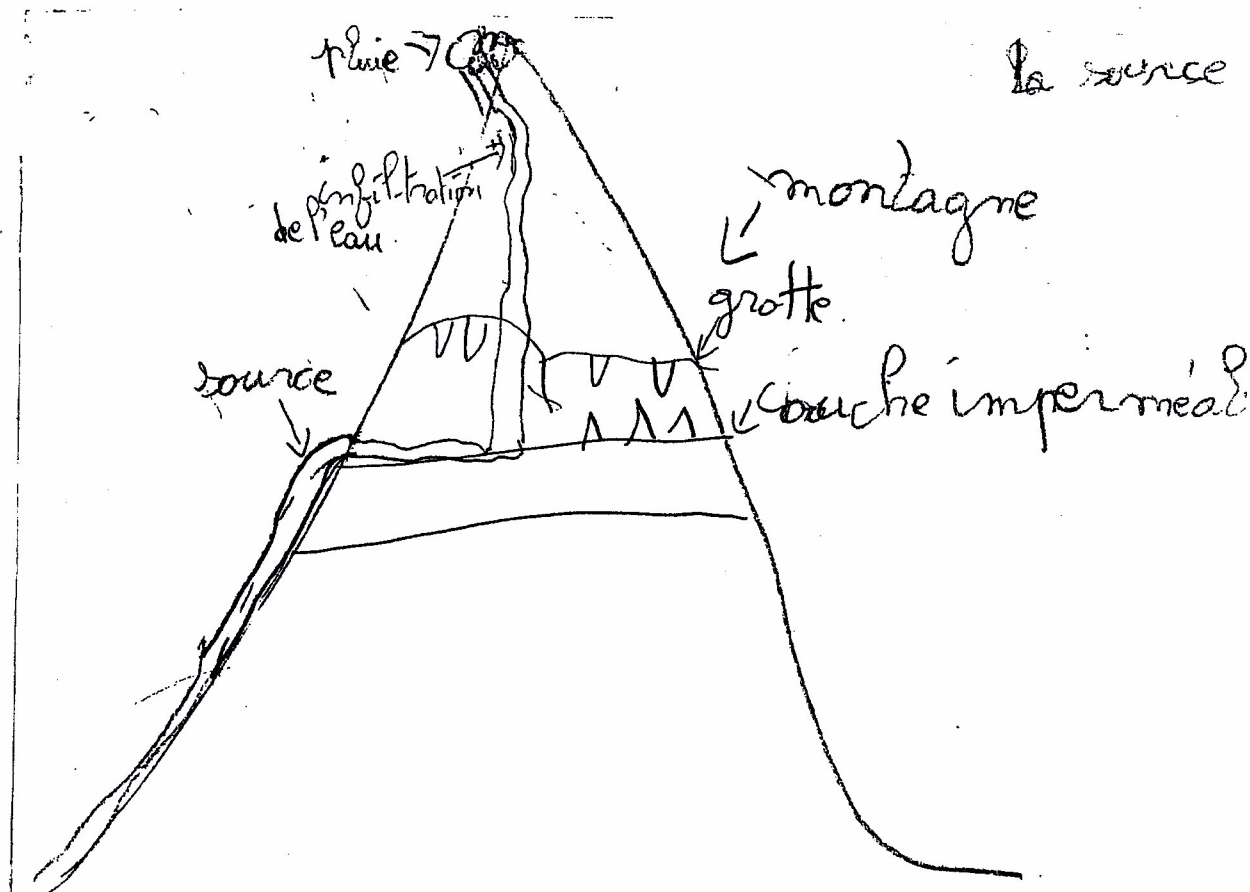 pluie
la source
infiltration
de l'eau.
montagne
grotte.
source
couche imperméab